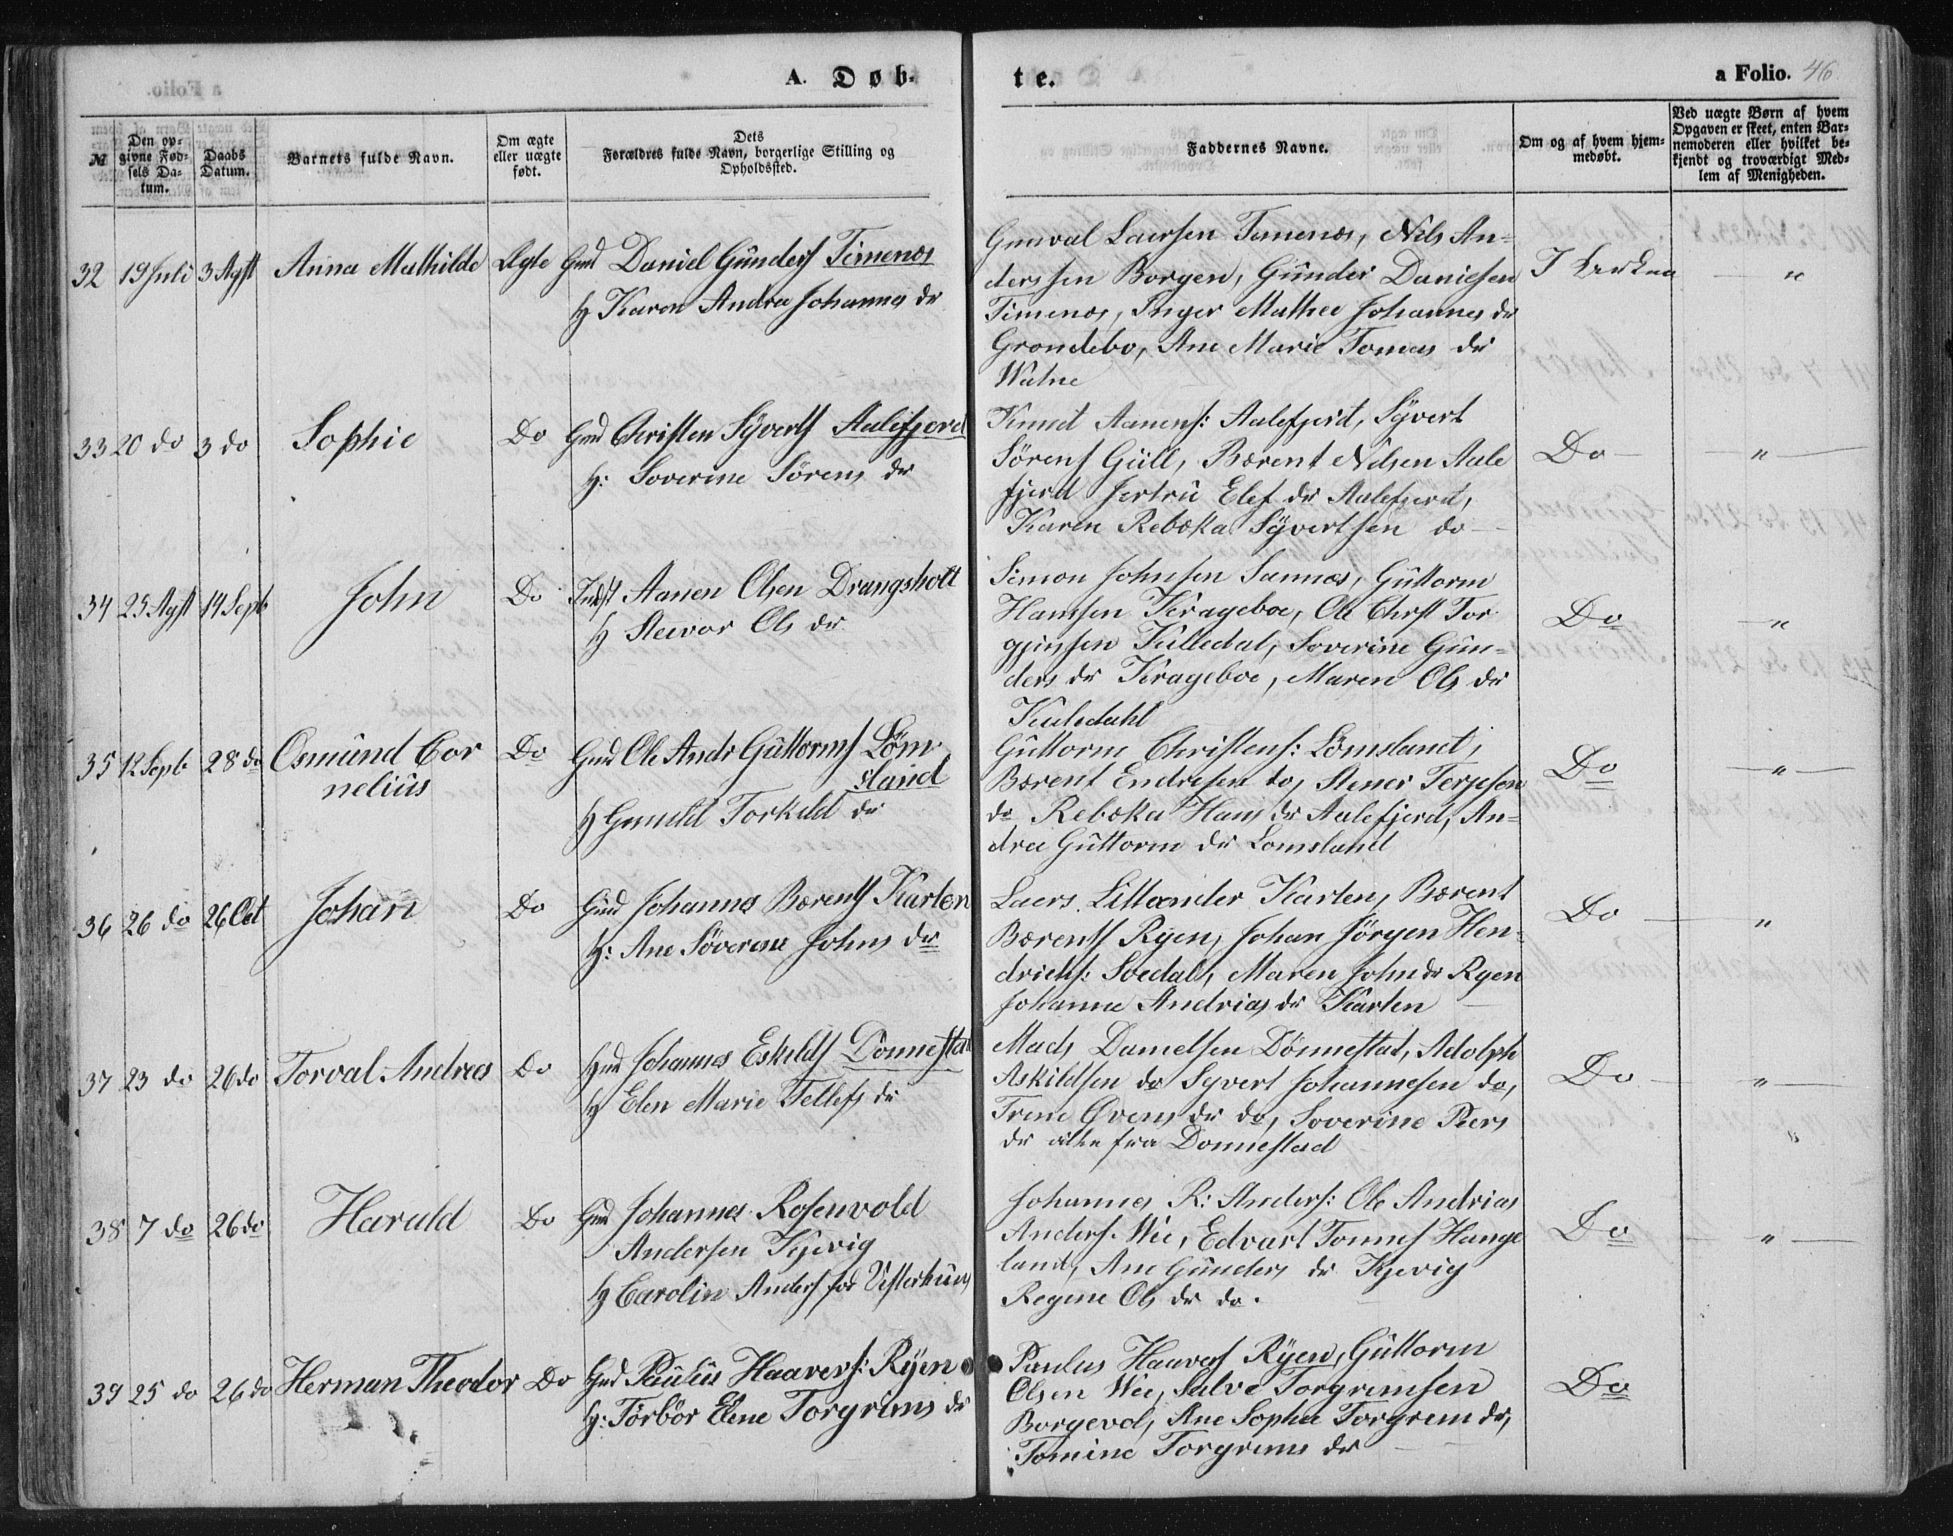 A. Døb-
te.
a Folio. 46
№
Den op-
givne Fød-
sels Da-
tum.
Daabs
Datum.
Barnets fulde Navn.
Om ægte
eller uægte
født.
Dets
Forældres fulde Navn, borgerlige Stilling og
Opholdssted.
Faddernes Navne.
Om og af hvem hjem-
medøbt.
Ved uægte Børn af hvem
Opgaven er skeet, enten Bar-
nemoderen eller hvilket be-
kjendt og troværdigt Med-
lem af Menigheden.
32 19 Juli 3 Agst Anna Mathilde Ægte Gmd Daniel Gunders Timenes
H Karen Andrea Johannes dr
Gunval Laersen Timenes, Nils An=
derssen Borgen, Gunder Danielsen
Timenes, Inger Mathea Johannes dr
Grondebo, Ane Marie Tomas dr
Watne
I Kirken "
33 20 do 3 do Sophie Do Gmd Christen Syverts Aalefjærd
H: Soverine Sørens dr
Knud Aanens: Aalefjerd, Syvert
Sørens Gill, Bærent Nilsen Aale
fjerd Jertru Elef dr Aalefjerd,
Karen Rebæka Syvertsen do
Do "
34 25 Agst 14 Sept John Do Indst Aanen Olsen Drangsholt
H Steevor Ols dr
Simon Johnsen Sannæs, Guttorm
Hansen Krageboe, Ole Christ Tor
gjussen Kulledal, Soverine Gun=
ders dr Krageboe, Maren Ols dr
Kuledahl
Do "
35 12 Sept 28 do Osmund Cor
nelius
Do Gmd Ole Andr Guttorms Løm
sland
H Gunild Torkeld dr
Guttorm Christens: Lømsland,
Bærent Endresen do, Stener Terjesen
do Rebæka Hans dr Aalefjerd, An=
drea Guttorm dr Lomsland
Do "
36 26 do 26 Oct Johan Do Gmd Johannes Bærents Karten
H: Ane Søverene Johns dr
Laers Karten, Bærent
Bærents Ryen, Johan Jörgen Hen=
drichs: Soedal, Maren John dr Ryen
Johanne Andrias dr Karten
Do "
37 23 do 26 do Torval Andreas Do Gmd Johannes Eskilds Donnestad
H Elen Marie Tellefs dr
Mads Danielsen Dönnestad, Adolph
Askildsen do Syvert Johannesen do,
Trine Øvens dr do, Soverine Peers
dr alle fra Donnestad
Do "
38 7 do 26 do Harald Do Gmd Johannes Rosenvold
Andersen Kjevig
H Carolin Anders for Vesterhuus
Johannes R: Anders: Ole Andrias
Anders. Wee, Edvart Tonnes Hange
land, Ane Gunders dr Kjevig
Regine Ols dr do.
Do "
39 25 do 26 do Herman Theodor Do Gmd Paulus Haavers: Ryen
H: Torbor Elene Torgrims dr
Paulus Haavers Ryen, Guttorm
Olsen Wee, Salve Torgrimsen
Borgevol, Ane Sophie Torgrim dr,
Tomine Torgrims dr
Do